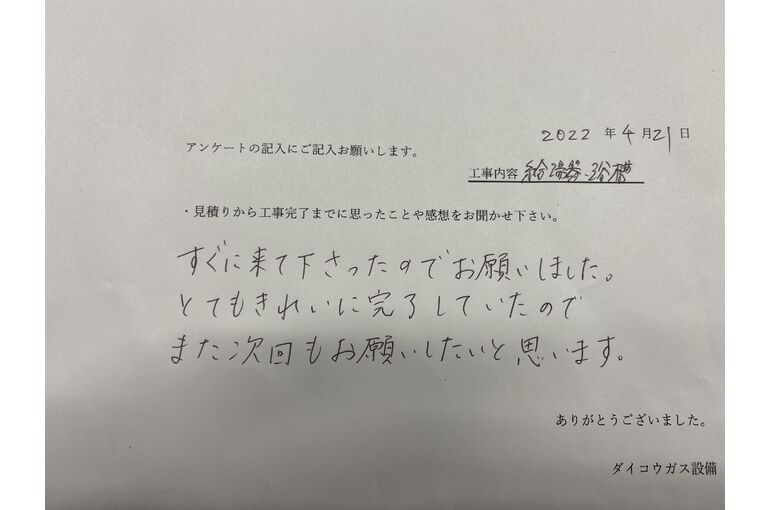 2022 年 4 月 21 日
アンケートの記入にご記入お願いします。
工事内容 給湯器・浴槽
・見積りから工事完了までに思ったことや感想をお聞かせ下さい。
すぐに来て下さったのでお願いしました。
とてもきれいに完了していたので
また次回もお願いしたいと思います。
ありがとうございました。
ダイコウガス設備